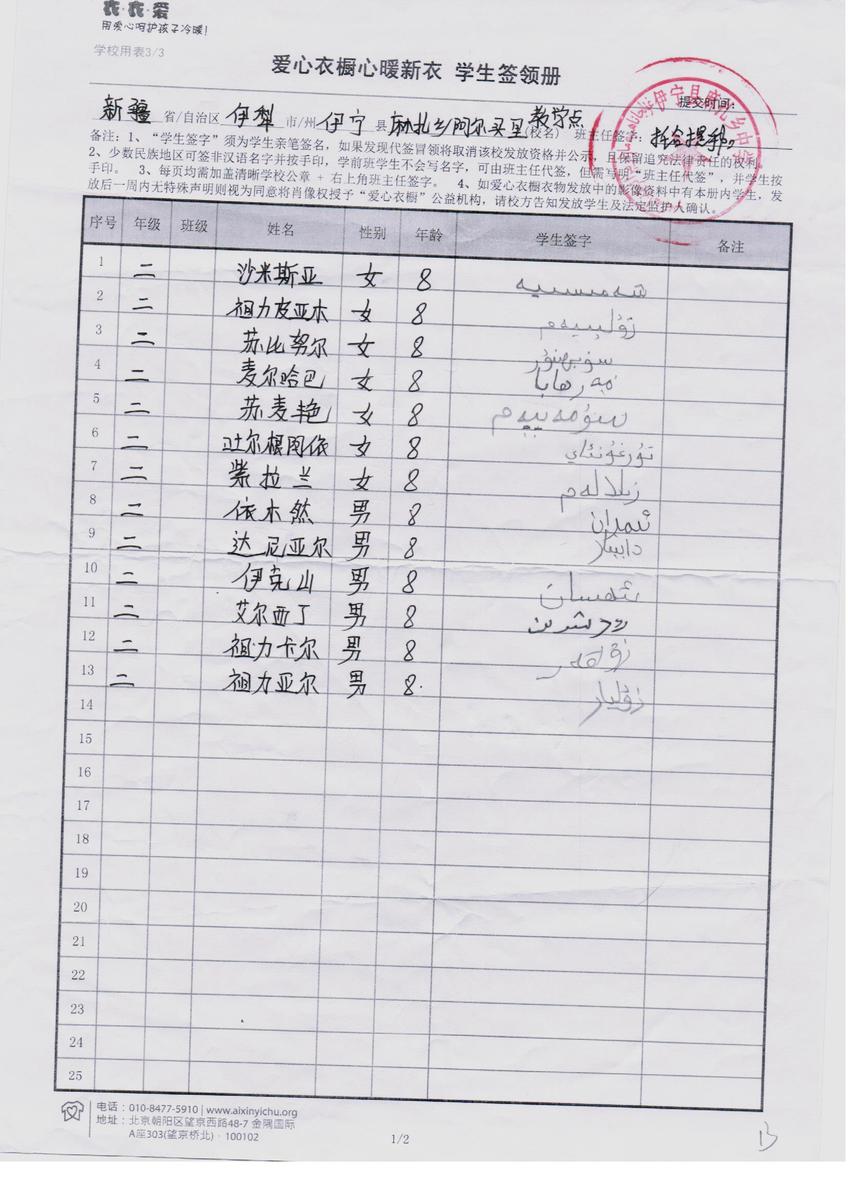 衣·衣·爱
用爱心呵护孩子冷暖!
学校用表3/3
爱心衣橱心暖新衣 学生签领册
提交时间:
新疆 省/自治区 伊犁 市/州 伊宁 县 麻扎乡阿尔买里教学点 (校名) 班主任签字:
备注:1、“学生签字”须为学生亲笔签名,如果发现代签冒领将取消该校发放资格并公示,且保留追究法律责任的权利。
2、少数民族地区可签非汉语名字并按手印,学前班学生不会写名字,可由班主任代签,但需写明“班主任代签”,并学生按
手印。 3、每页均需加盖清晰学校公章 + 右上角班主任签字。 4、如爱心衣橱衣物发放中的影像资料中有本册内学生,发
放后一周内无特殊声明则视为同意将肖像权授予“爱心衣橱”公益机构,请校方告知发放学生及法定监护人确认。
伊宁县麻扎乡中学
序号 年级 班级 姓名 性别 年龄 学生签字 备注
1 二 沙米斯亚 女 8 شەمسىيە
2 二 祖力皮亚木 女 8
3 二 苏比努尔 女 8 سۇبھىنۇر
4 二 麦尔哈巴 女 8 مەرھابا
5 二 苏麦艳 女 8
6 二 吐尔根图依 女 8 تۇرغۇنئاي
7 二 紫拉兰 女 8 زىلالەم
8 二 依木然 男 8 ئىمران
9 二 达尼亚尔 男 8 دانىيار
10 二 伊克山 男 8
11 二 艾尔西丁 男 8
12 二 祖力卡尔 男 8
13 二 祖力亚尔 男 8 زۇلىيار
14
15
16
17
18
19
20
21
22
23
24
25
电话:010-8477-5910 | www.aixinyichu.org
地址:北京朝阳区望京西路48-7 金隅国际
A座303(望京桥北)· 100102
1/2
13